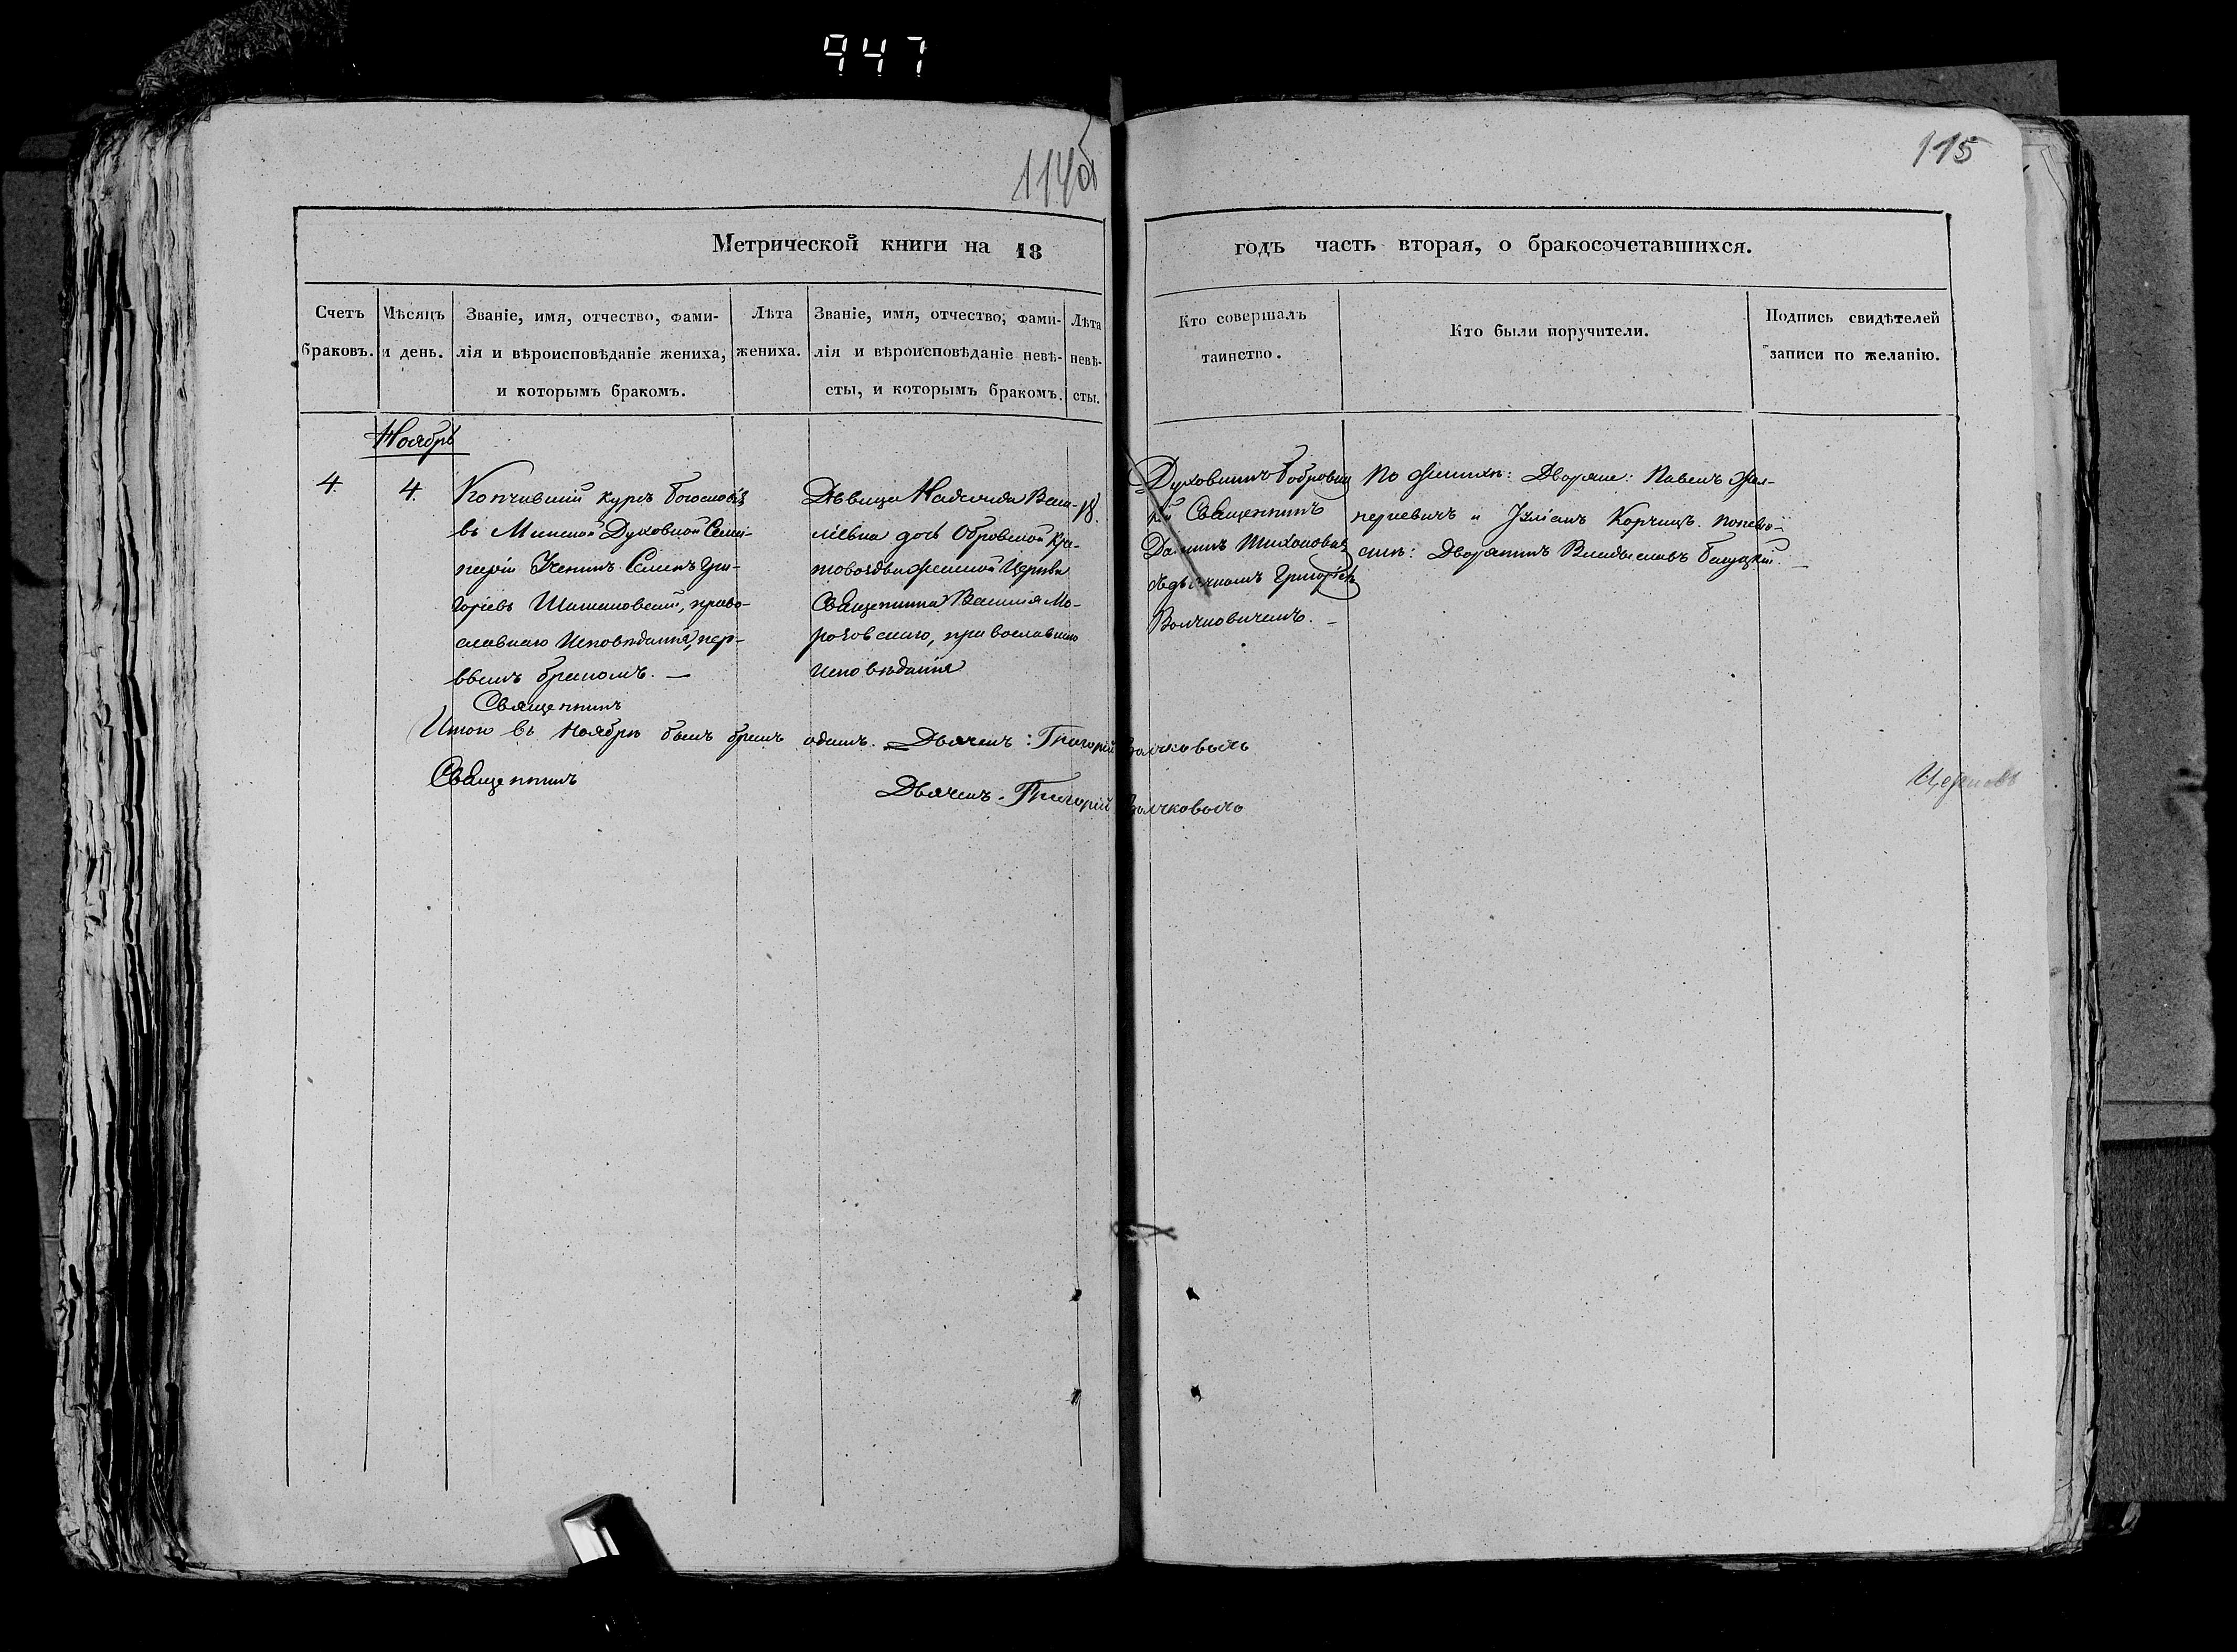 947
114об
115
Метрической книги на 18 годъ часть вторая, о бракосочетавшихся.
Счетъ браковъ.
Мѣсяцъ и день.
Званіе, имя, отчество, фами-
лія и вѣроисповѣданіе жениха,
и которымъ бракомъ.
Лѣта жениха.
Званіе, имя, отчество, фами-
лія и вѣроисповѣданіе невѣ-
сты, и которымъ бракомъ.
Лѣта невѣ-
сты.
Кто совершалъ
таинство.
Кто были поручители.
Подпись свидѣтелей
записи по желанію.
Ноябрь
4.
4.
Кончившій курсъ богословія
въ Минской Духовной Семи-
наріи Ученикъ Семенъ Гри-
горіевъ православнаго Исповѣданія, пер-
вымъ бракомъ. —
Дѣвица Надежда Васи-
ліевна дочь Обровской Кре-
стовоздвиженской Церкви
Священника Василія Мо-
роховскаго, православнаго
Исповѣданія
18.
Священникъ
съ дьячкомъ Григоріемъ
Волчковичемъ. —
По женихѣ: Дворяне: Павелъ
и Корчицъ. По невѣ-
стѣ: Дворянинъ Владиславъ
Священникъ
Итого въ Ноябрѣ былъ бракъ одинъ. Дьячекъ: Григорій Волчковичъ
Священникъ
Дьячекъ. Григорій Волчковичъ